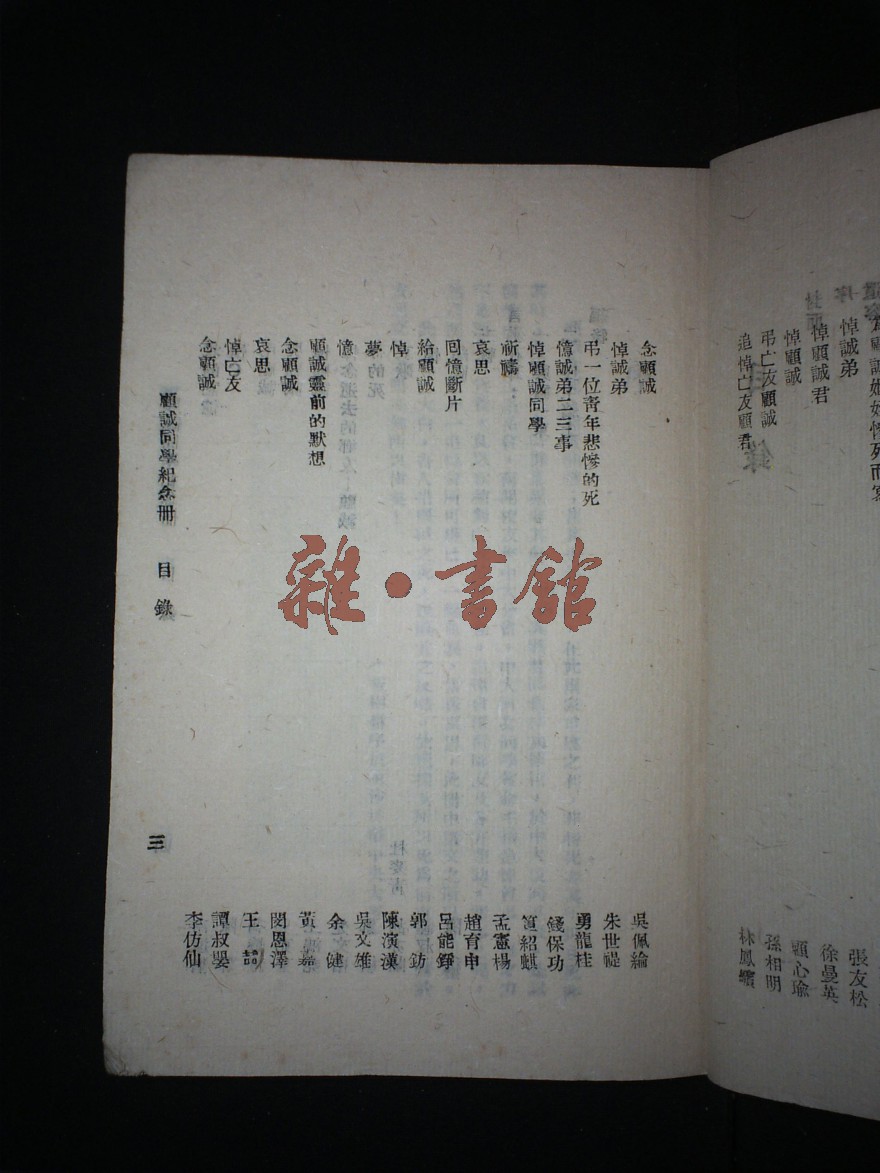 悼誠弟 張友松
悼顧誠君 徐曼英
悼顧誠 顧心瑜
弔亡友顧誠 孫相明
追悼亡友顧君 林鳳
念顧誠 吳佩綸
悼誠弟 朱世褆
弔一位青年悲慘的死 勇龍桂
憶誠弟二三事 錢保功
悼顧誠同學 笪紹麒
祈禱 孟憲楊
哀思 趙育申
回憶斷片 呂能錚
給顧誠 郭鈁
悼 陳演漢
夢 吳文雄
憶 余健
顧誠靈前的默想 黃嘉
念顧誠 閔恩澤
哀思 王喆
悼亡友 譚叔嬰
念顧誠 李仿仙
顧誠同學紀念冊 目錄 三
雜·書館